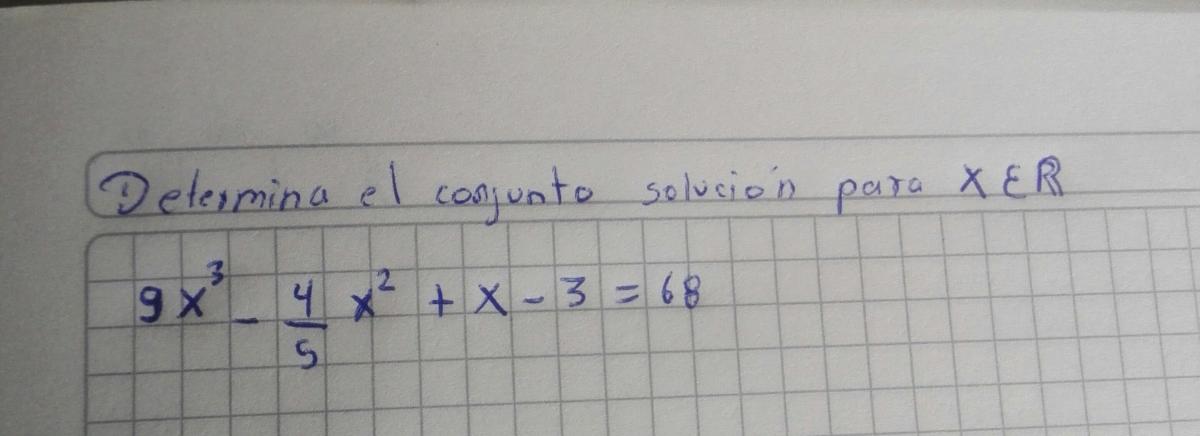 Determina el conjunto solución para x ∈ ℝ
9x³ - 4/5 x² + x - 3 = 68